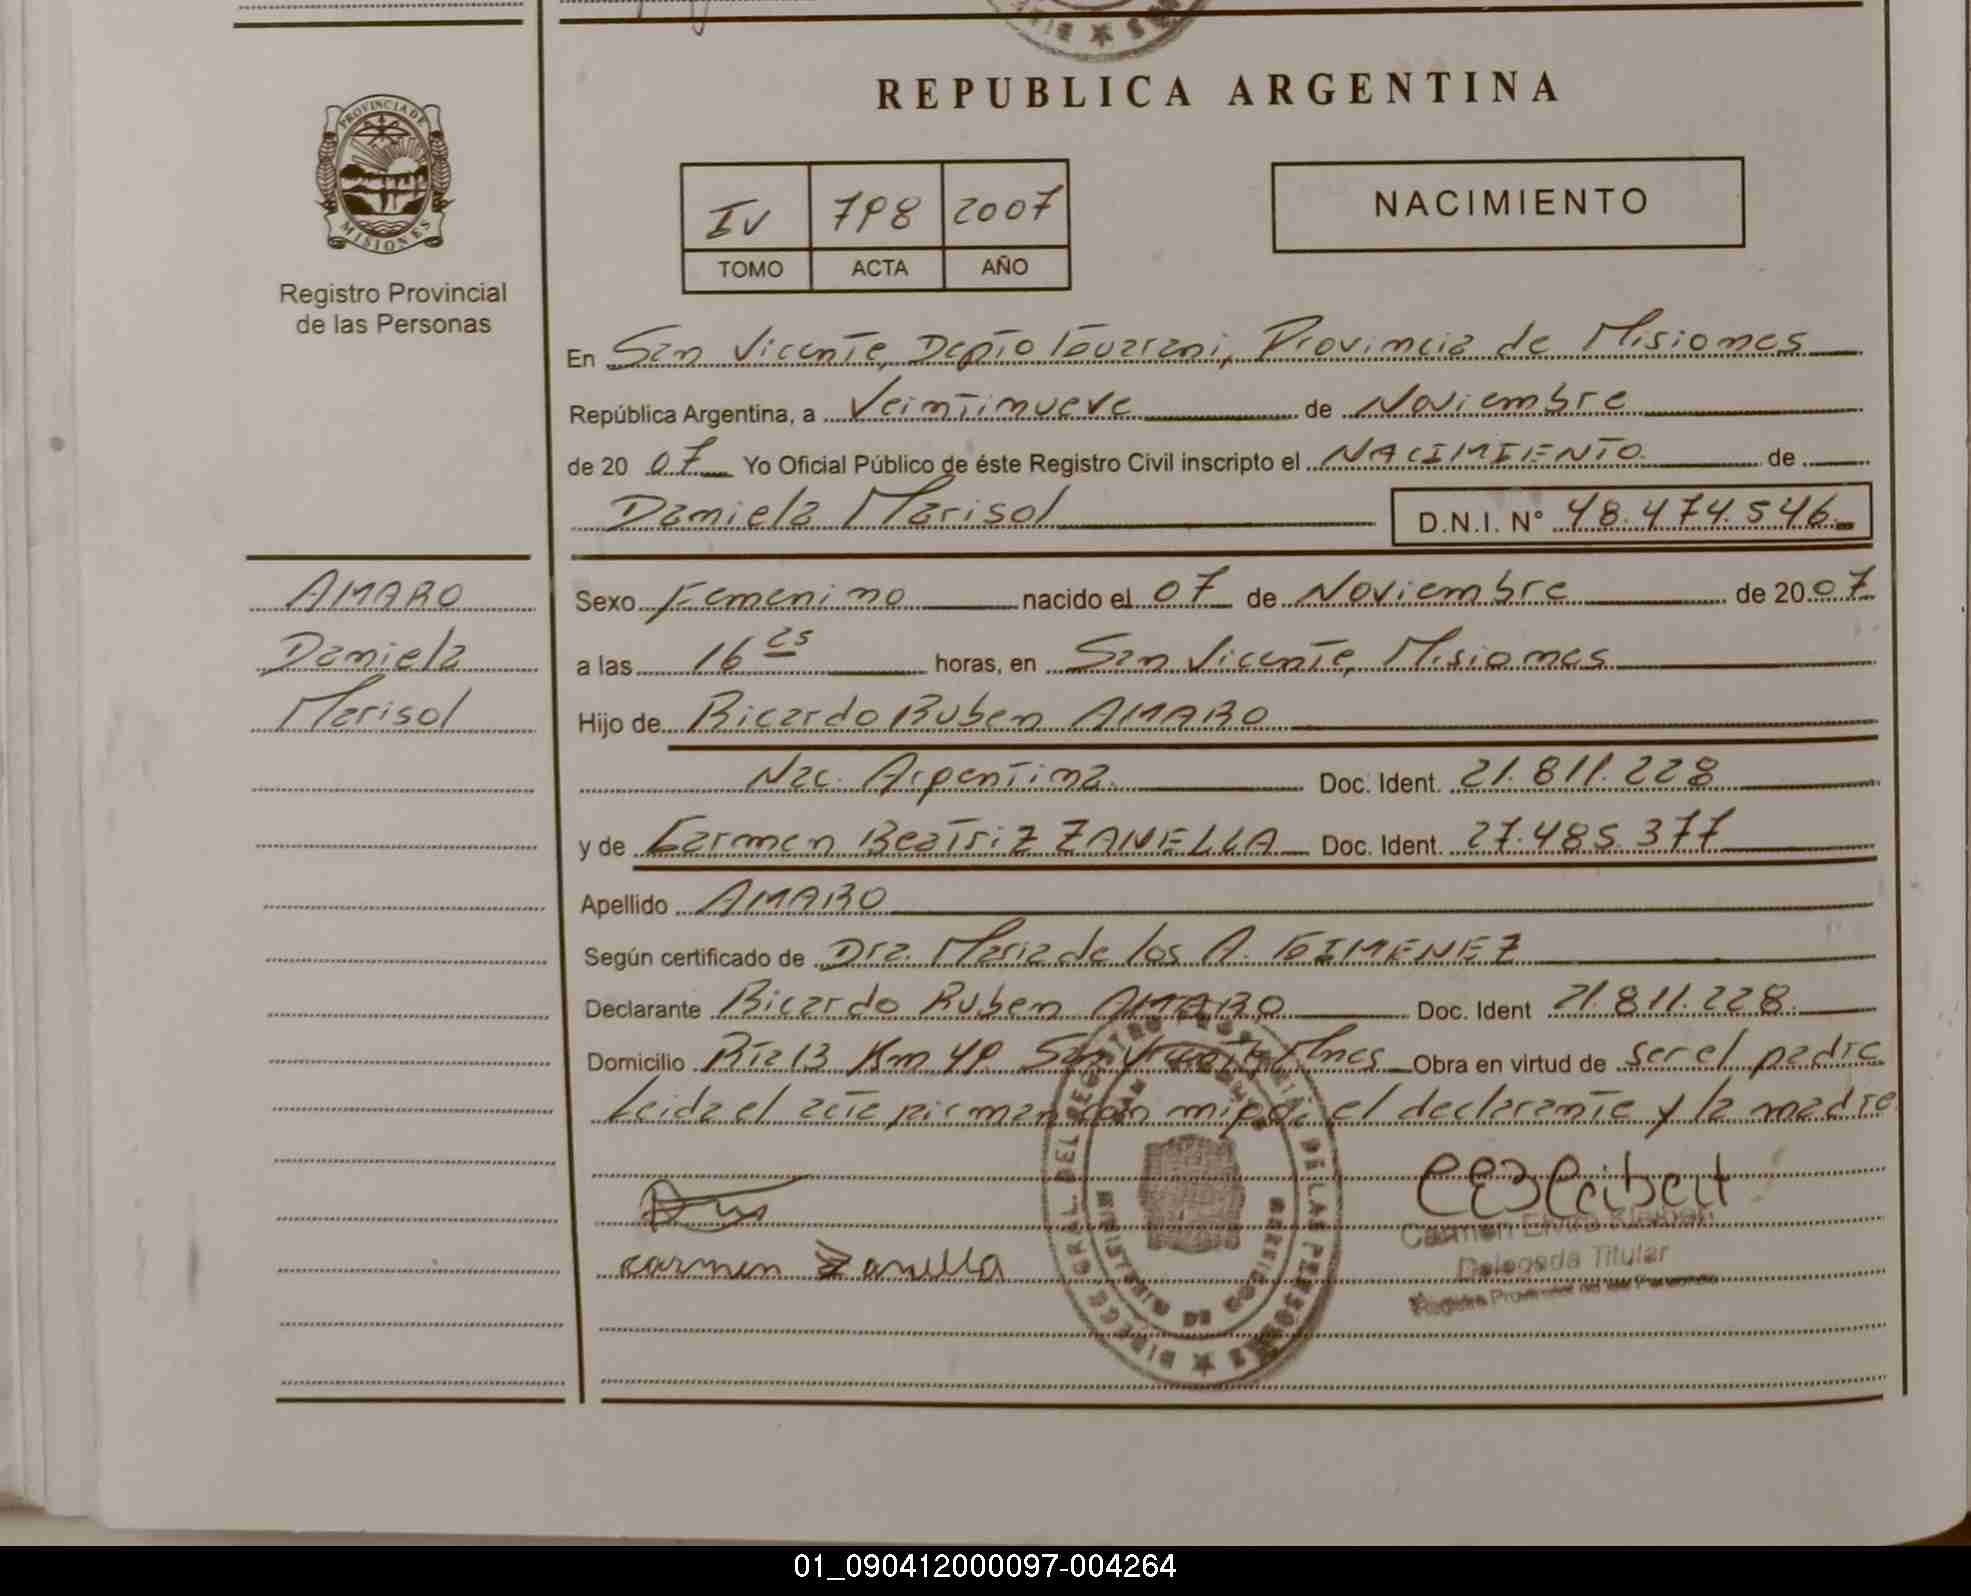 REPUBLICA ARGENTINA
PROVINCIA DE MISIONES
Registro Provincial
de las Personas
IV 798 2007
TOMO ACTA AÑO
NACIMIENTO
En San Vicente, Depto Guarani, Provincia de Misiones
República Argentina, a Veintinueve de Noviembre
de 2007 Yo Oficial Público de éste Registro Civil inscripto el NACIMIENTO de
Daniela Marisol D.N.I. N° 48.474.546.
AMARO
Daniela
Marisol
Sexo Femenino nacido el 07 de Noviembre de 2007
a las 16 25 horas, en San Vicente, Misiones
Hijo de Ricardo Ruben AMARO
Nac. Argentina. Doc. Ident. 21.811.228
y de Carmen Beatriz ZANELLA Doc. Ident. 27.485.377
Apellido AMARO
Según certificado de Dra. Maria de los A. GIMENEZ
Declarante Ricardo Ruben AMARO Doc. Ident 21.811.228.
Domicilio Rta 13 Km 49 San Vicente Mnes Obra en virtud de ser el padre
Leida el acta firman con migo, el declarante y la madre
carmen Zanella
Carmen Elvira
Delegada Titular
Registro Provincial de las Personas
01_090412000097-004264